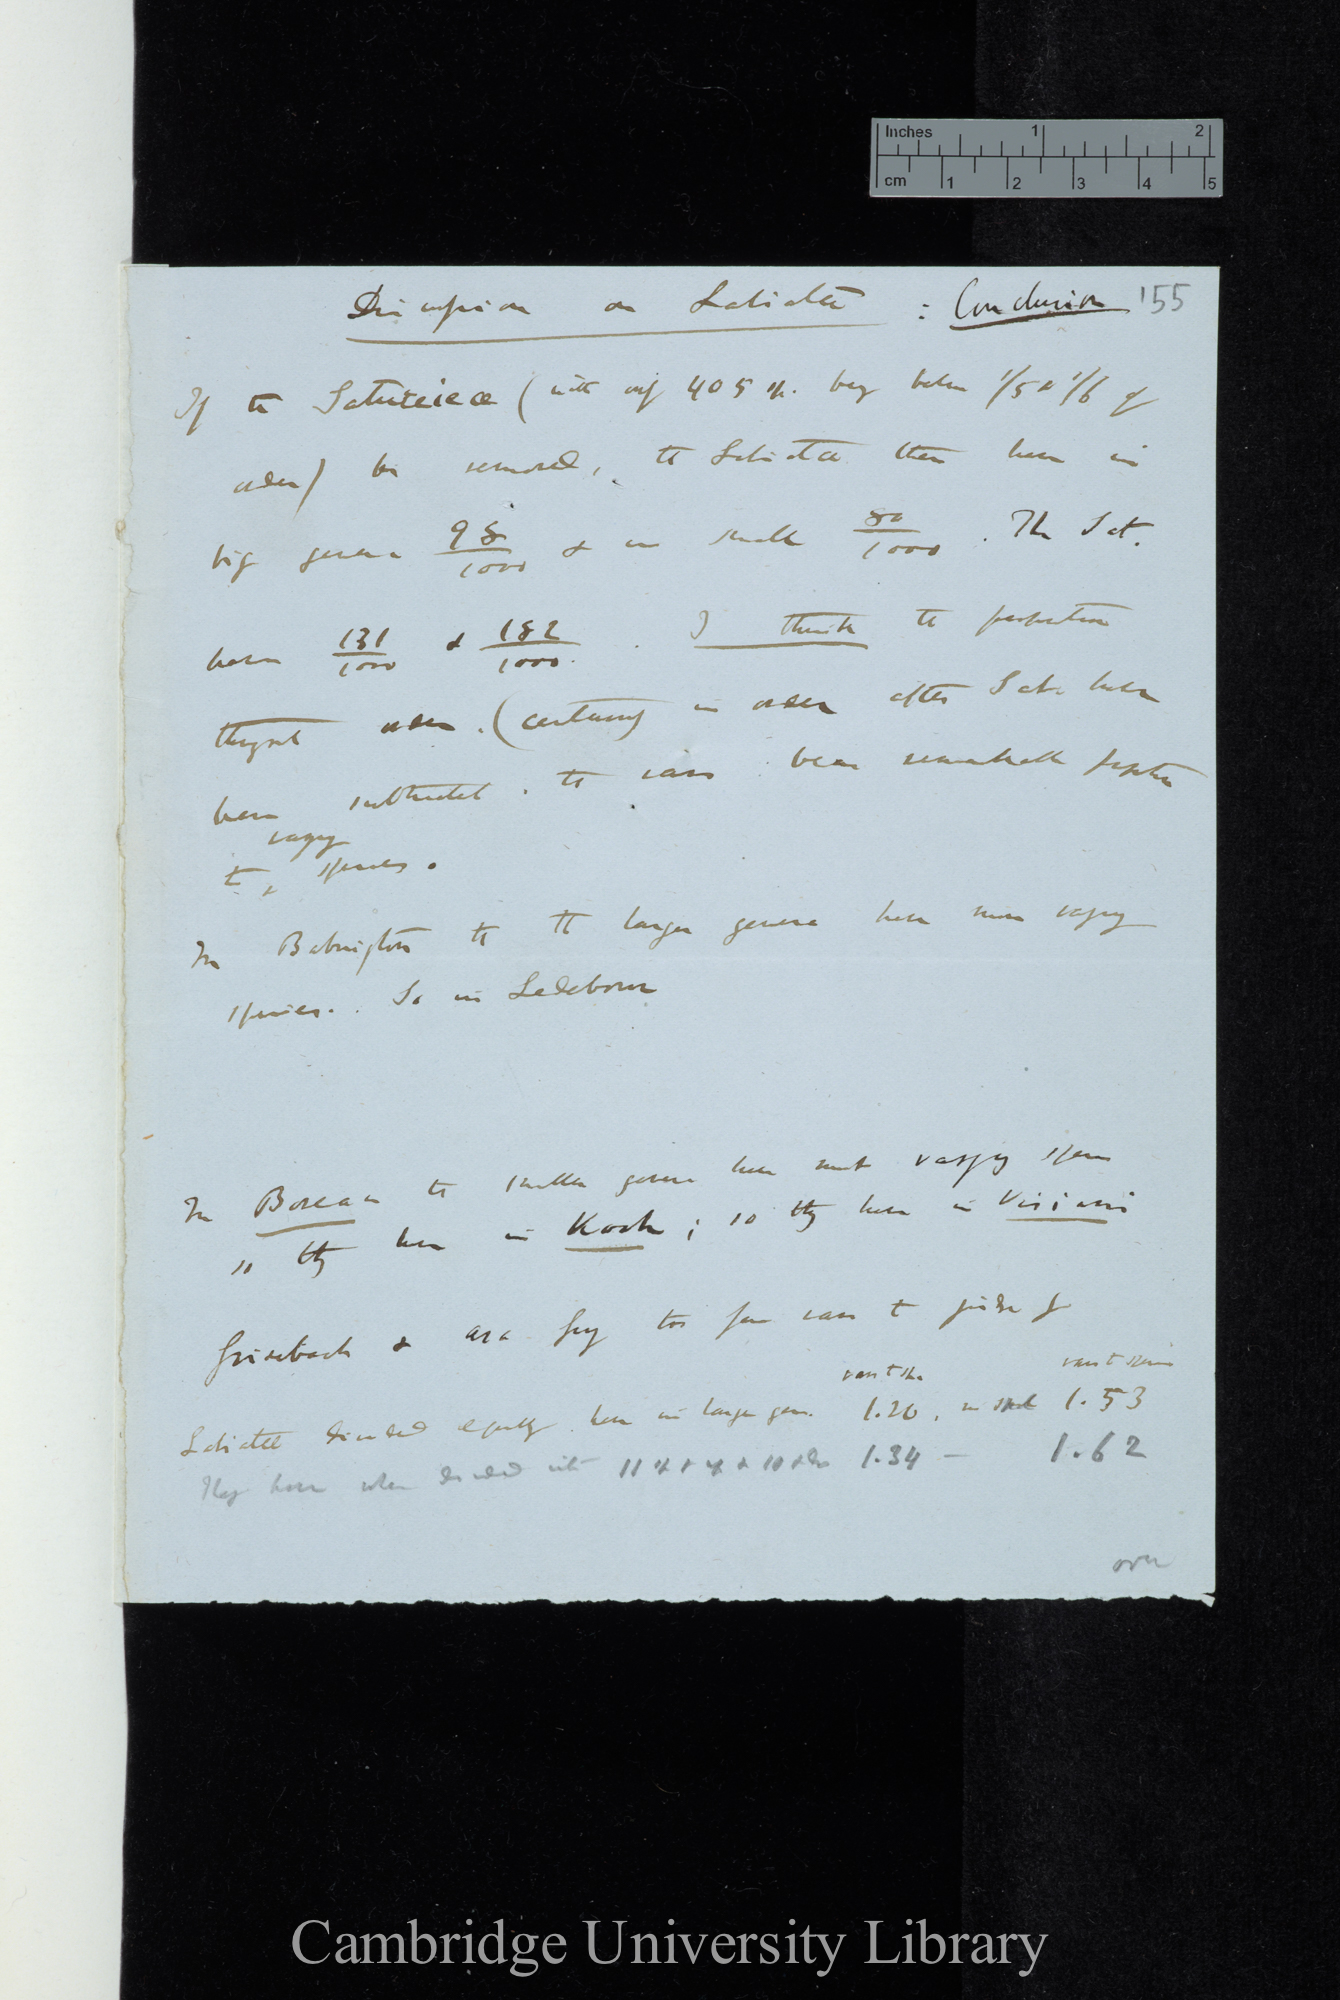 Inches 1 2
cm 1 2 3 4 5
Discussion on Labiatæ : Conclusion 155
If the Satureieæ (with only 405 sp. being between 1/5 & 1/6 of
order) be removed, the Labiatæ then have in
big genera 98/1000 & in small 80/1000 . The Sat.
have 131/1000 & 182/1000 . I think the proportion
throughout order . (certainly in order after Sat. have
been subtracted . the vars : bear remarkable proportion
varying
to species .
In Babington the larger genera have more varying
species . So in Ledebour
In Boreau the smaller genera have most varying species
so they have in Koch ; so they have in Visiani
Grisebach & Asa Gray too few vars to judge from
vars to species
Labiatæ divided equally have in larger gen. 1.20 , in small 1.53
They have when divided into 11 & + & 10 & 1.34 — 1.62
over
Cambridge University Library